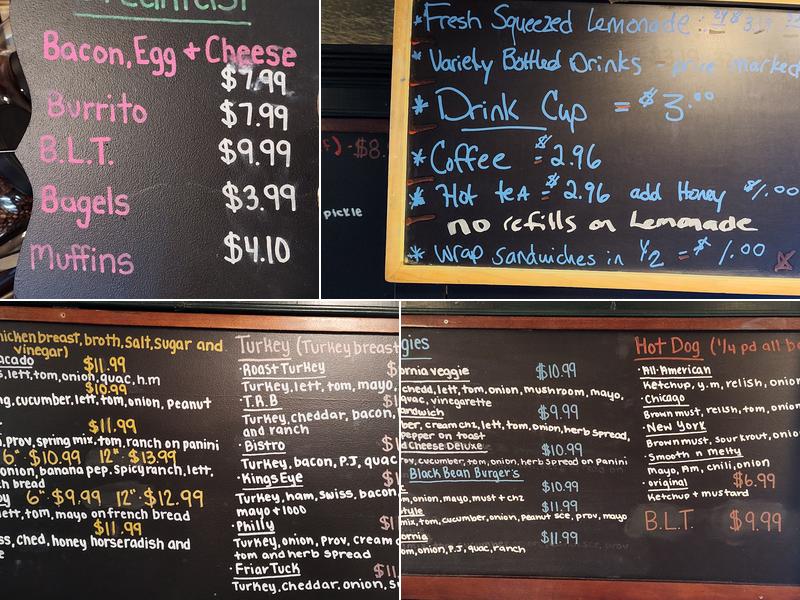 Breakfast
Bacon, Egg + Cheese
$7.99
Burrito $7.99
B.L.T. $9.99
Bagels $3.99
Muffins $4.10
-$8.
pickle
*Fresh Squeezed Lemonade :
*Variety Bottled Drinks - price marked
* Drink Cup = $3.00
*Coffee = $2.96
* Hot teA = $2.96 add Honey $1.00
no refills on Lemonade
* Wrap sandwiches in 1/2 = $1.00
breast, broth, salt, sugar and
vinegar)
$11.99
left, tom, onion, guac, h.m
$10.99
cucumber, lett, tom, onion, peanut
$11.99
prov, spring mix, tom, ranch on panini
6" $10.99 12" $13.99
onion, banana pep. spicy ranch, lett,
bread
6" $9.99 12" $12.99
lett, tom, mayo on french bread
$11.99
ched, honey horseradish and
Turkey (Turkey breast
· Roast Turkey
Turkey, lett, tom, mayo,
· T.R.B
Turkey, cheddar, bacon,
and ranch
· Bistro
Turkey, bacon, P.J, guac
· Kings Eye
Turkey, ham, swiss, bacon
mayo + 1000
· Philly
Turkey, onion, Prov, cream
tom and herb spread
· Friar Tuck
Turkey, cheddar, onion,
gies
veggie $10.99
chedd, left, tom, onion, mushroom, mayo,
guac, vinegarette
$9.99
cream chz, lett, tom, onion, herb spread,
pepper on toast
Cheese Deluxe $10.99
cucumber, tom, onion, herb spread on panini
Black Bean Burger's
$10.99
onion, mayo, must + chz
$11.99
mix, tom, cucumber, onion, peanut sce, prov, mayo
$11.99
tom, onion, P.J, guac, ranch
Hot Dog (1/4 pd all
· All-American
Ketchup, y.m, relish, onion
· Chicago
Brown must, relish, tom, onion
· New York
Brown must, sour krout, onion
· Smooth n melty
Mayo, Am, chili, onion
· original $6.99
Ketchup + mustard
B.L.T. $9.99